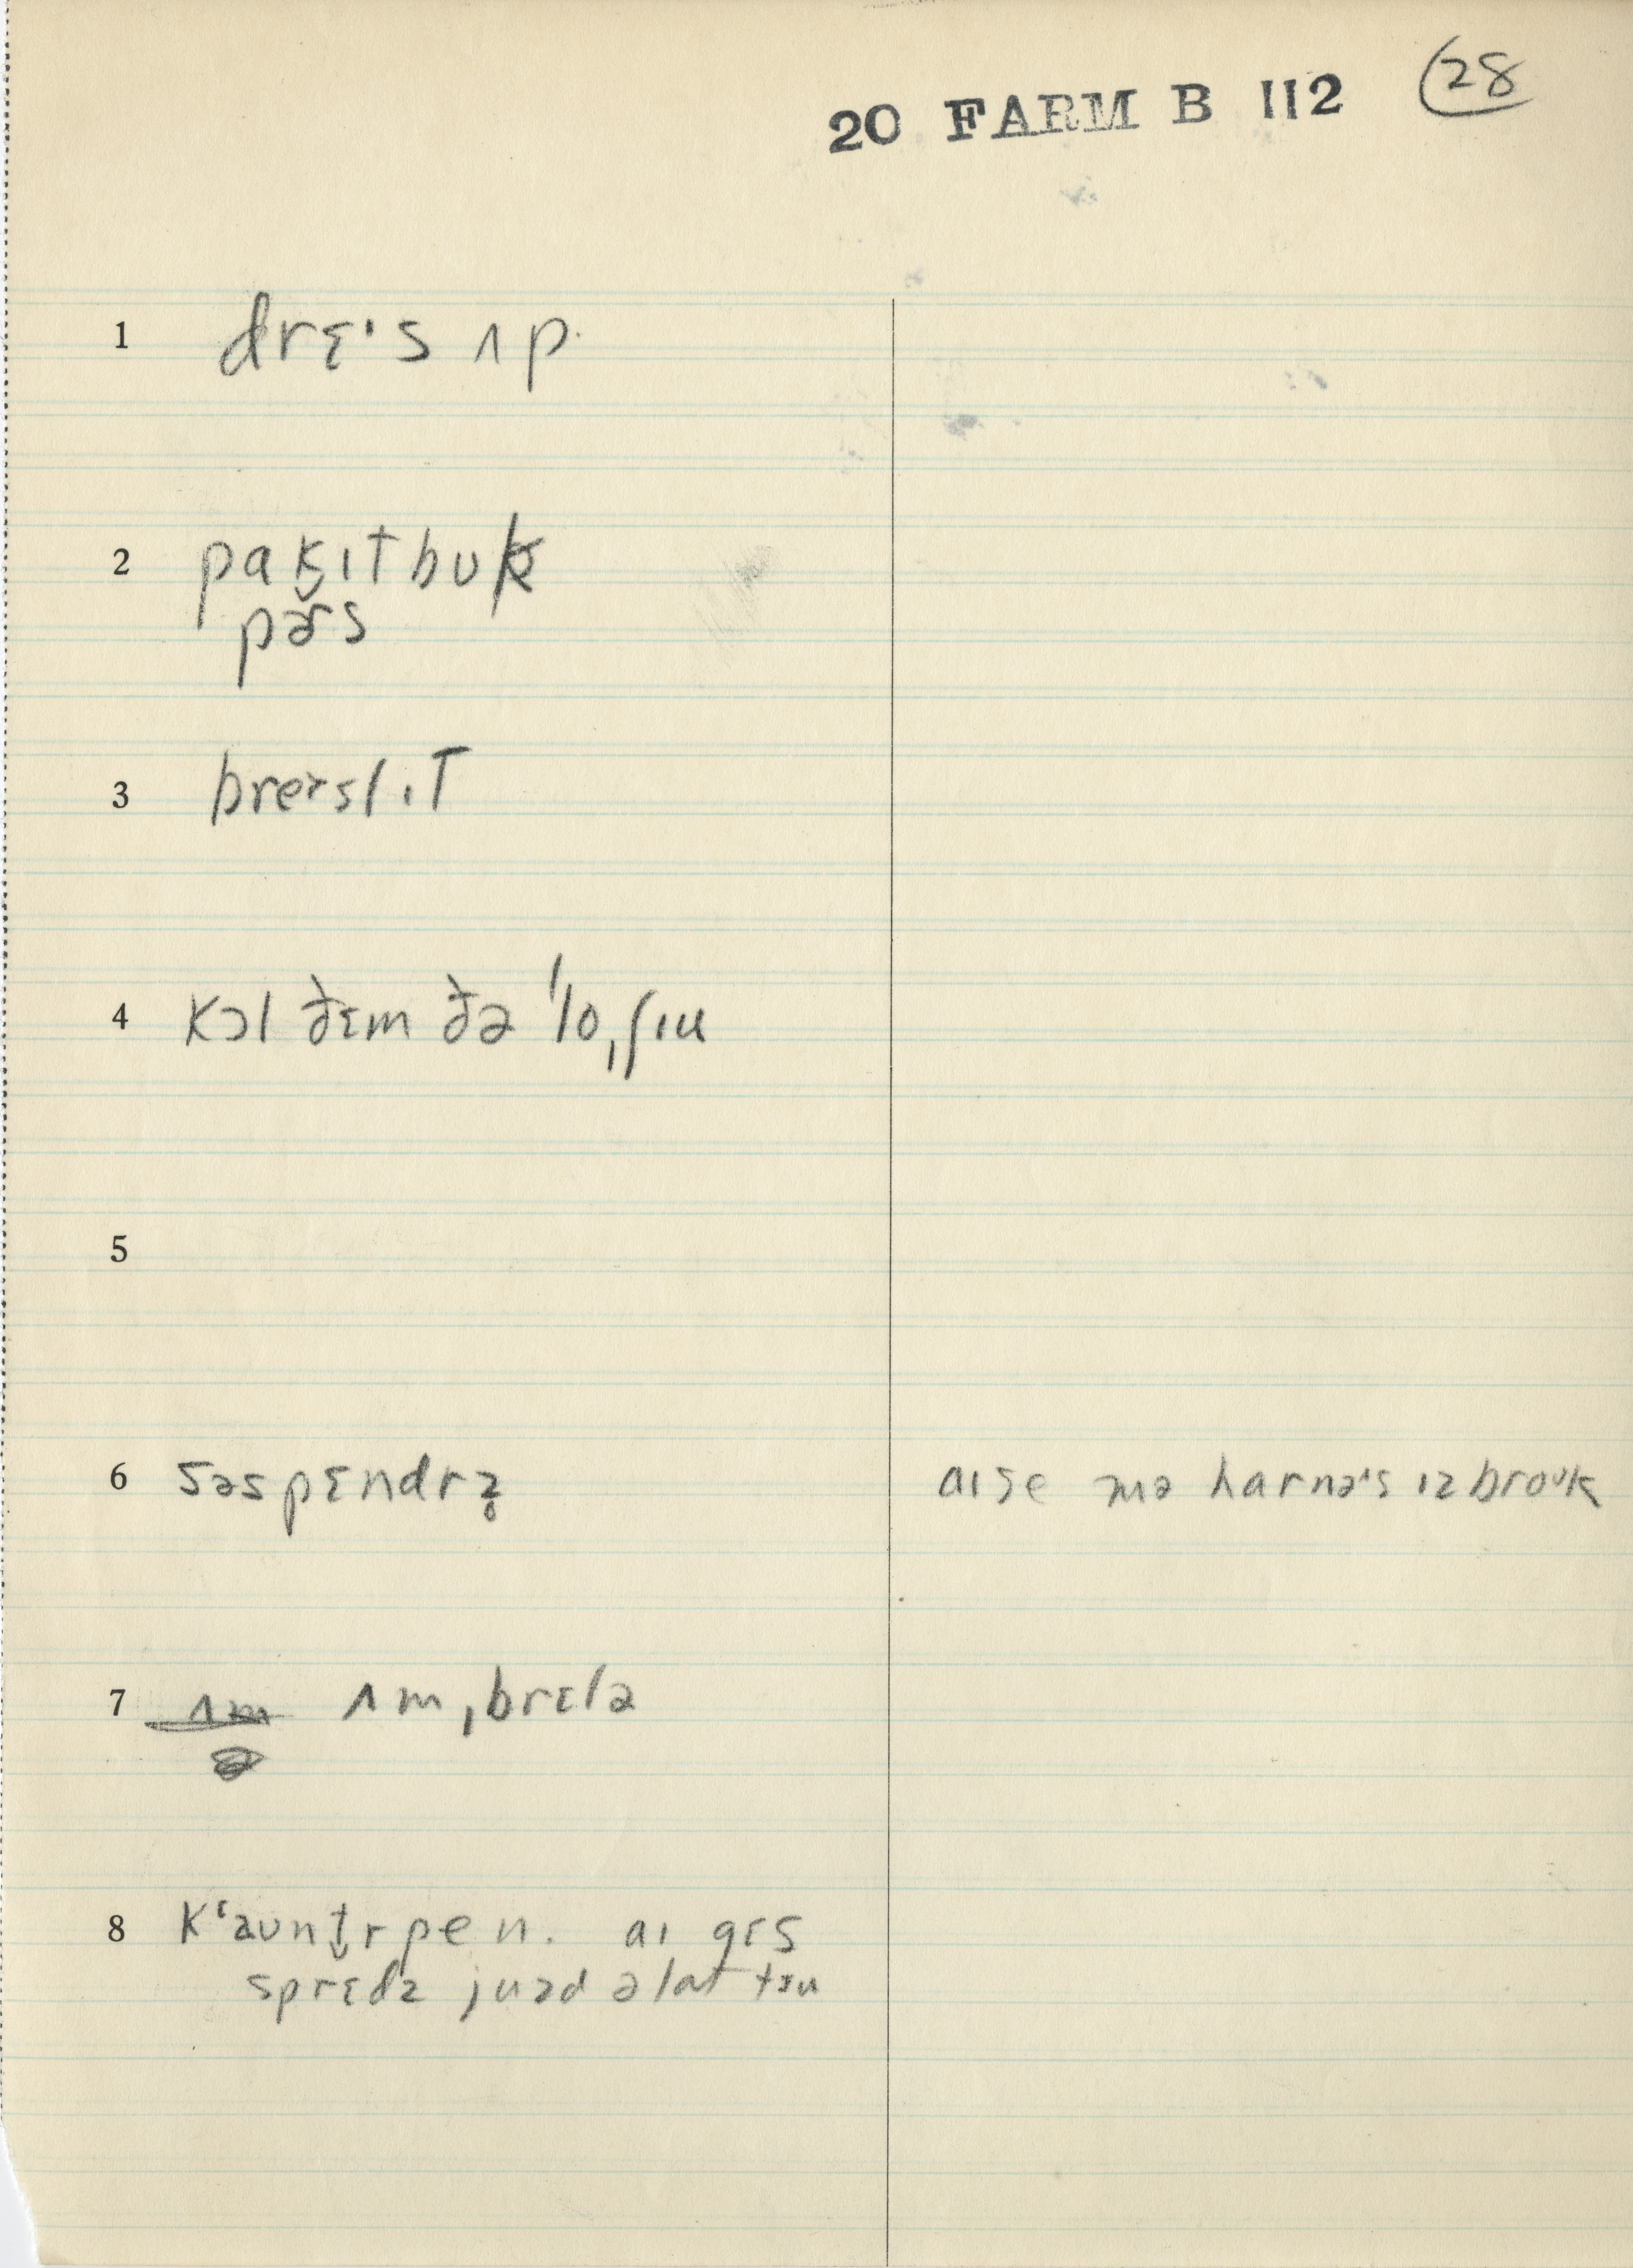 20 FARM B 112 28
1 drɛˑs ʌp
2 pak̬ɪtbuk
pɚs
3 breɪslɪT
4 kɔl ðɛm ðə ˈloˌʃɪu
5
6 səspɛndrz̥
aɪ se mə harnəˑs ɪz broᴜk
7 ʌm ʌmˌbrɛlə
8 kʻaunt̬rpen. aɪ gɛs
sprɛdz juzd əlat tɜu